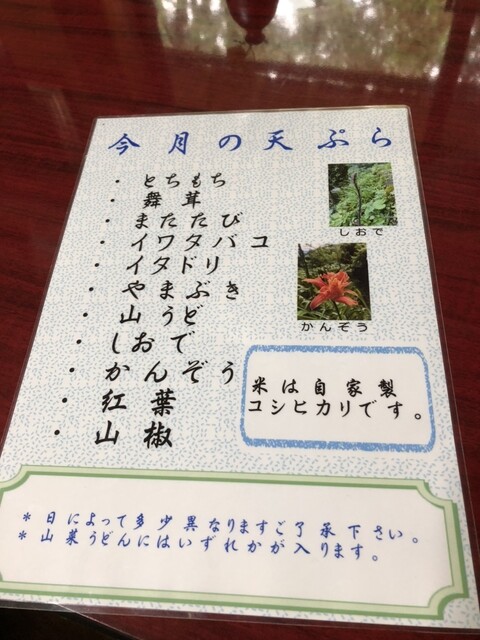 今月の天ぷら
・とちもち
・舞茸
・またたび
・イワタバコ
・イタドリ
・やまぶき
・山うど
・しおで
・かんぞう
・紅葉
・山椒
しおで
かんぞう
米は自家製
コシヒカリです。
＊日によって多少異なりますご了承下さい。
＊山菜うどんにはいずれかが入ります。